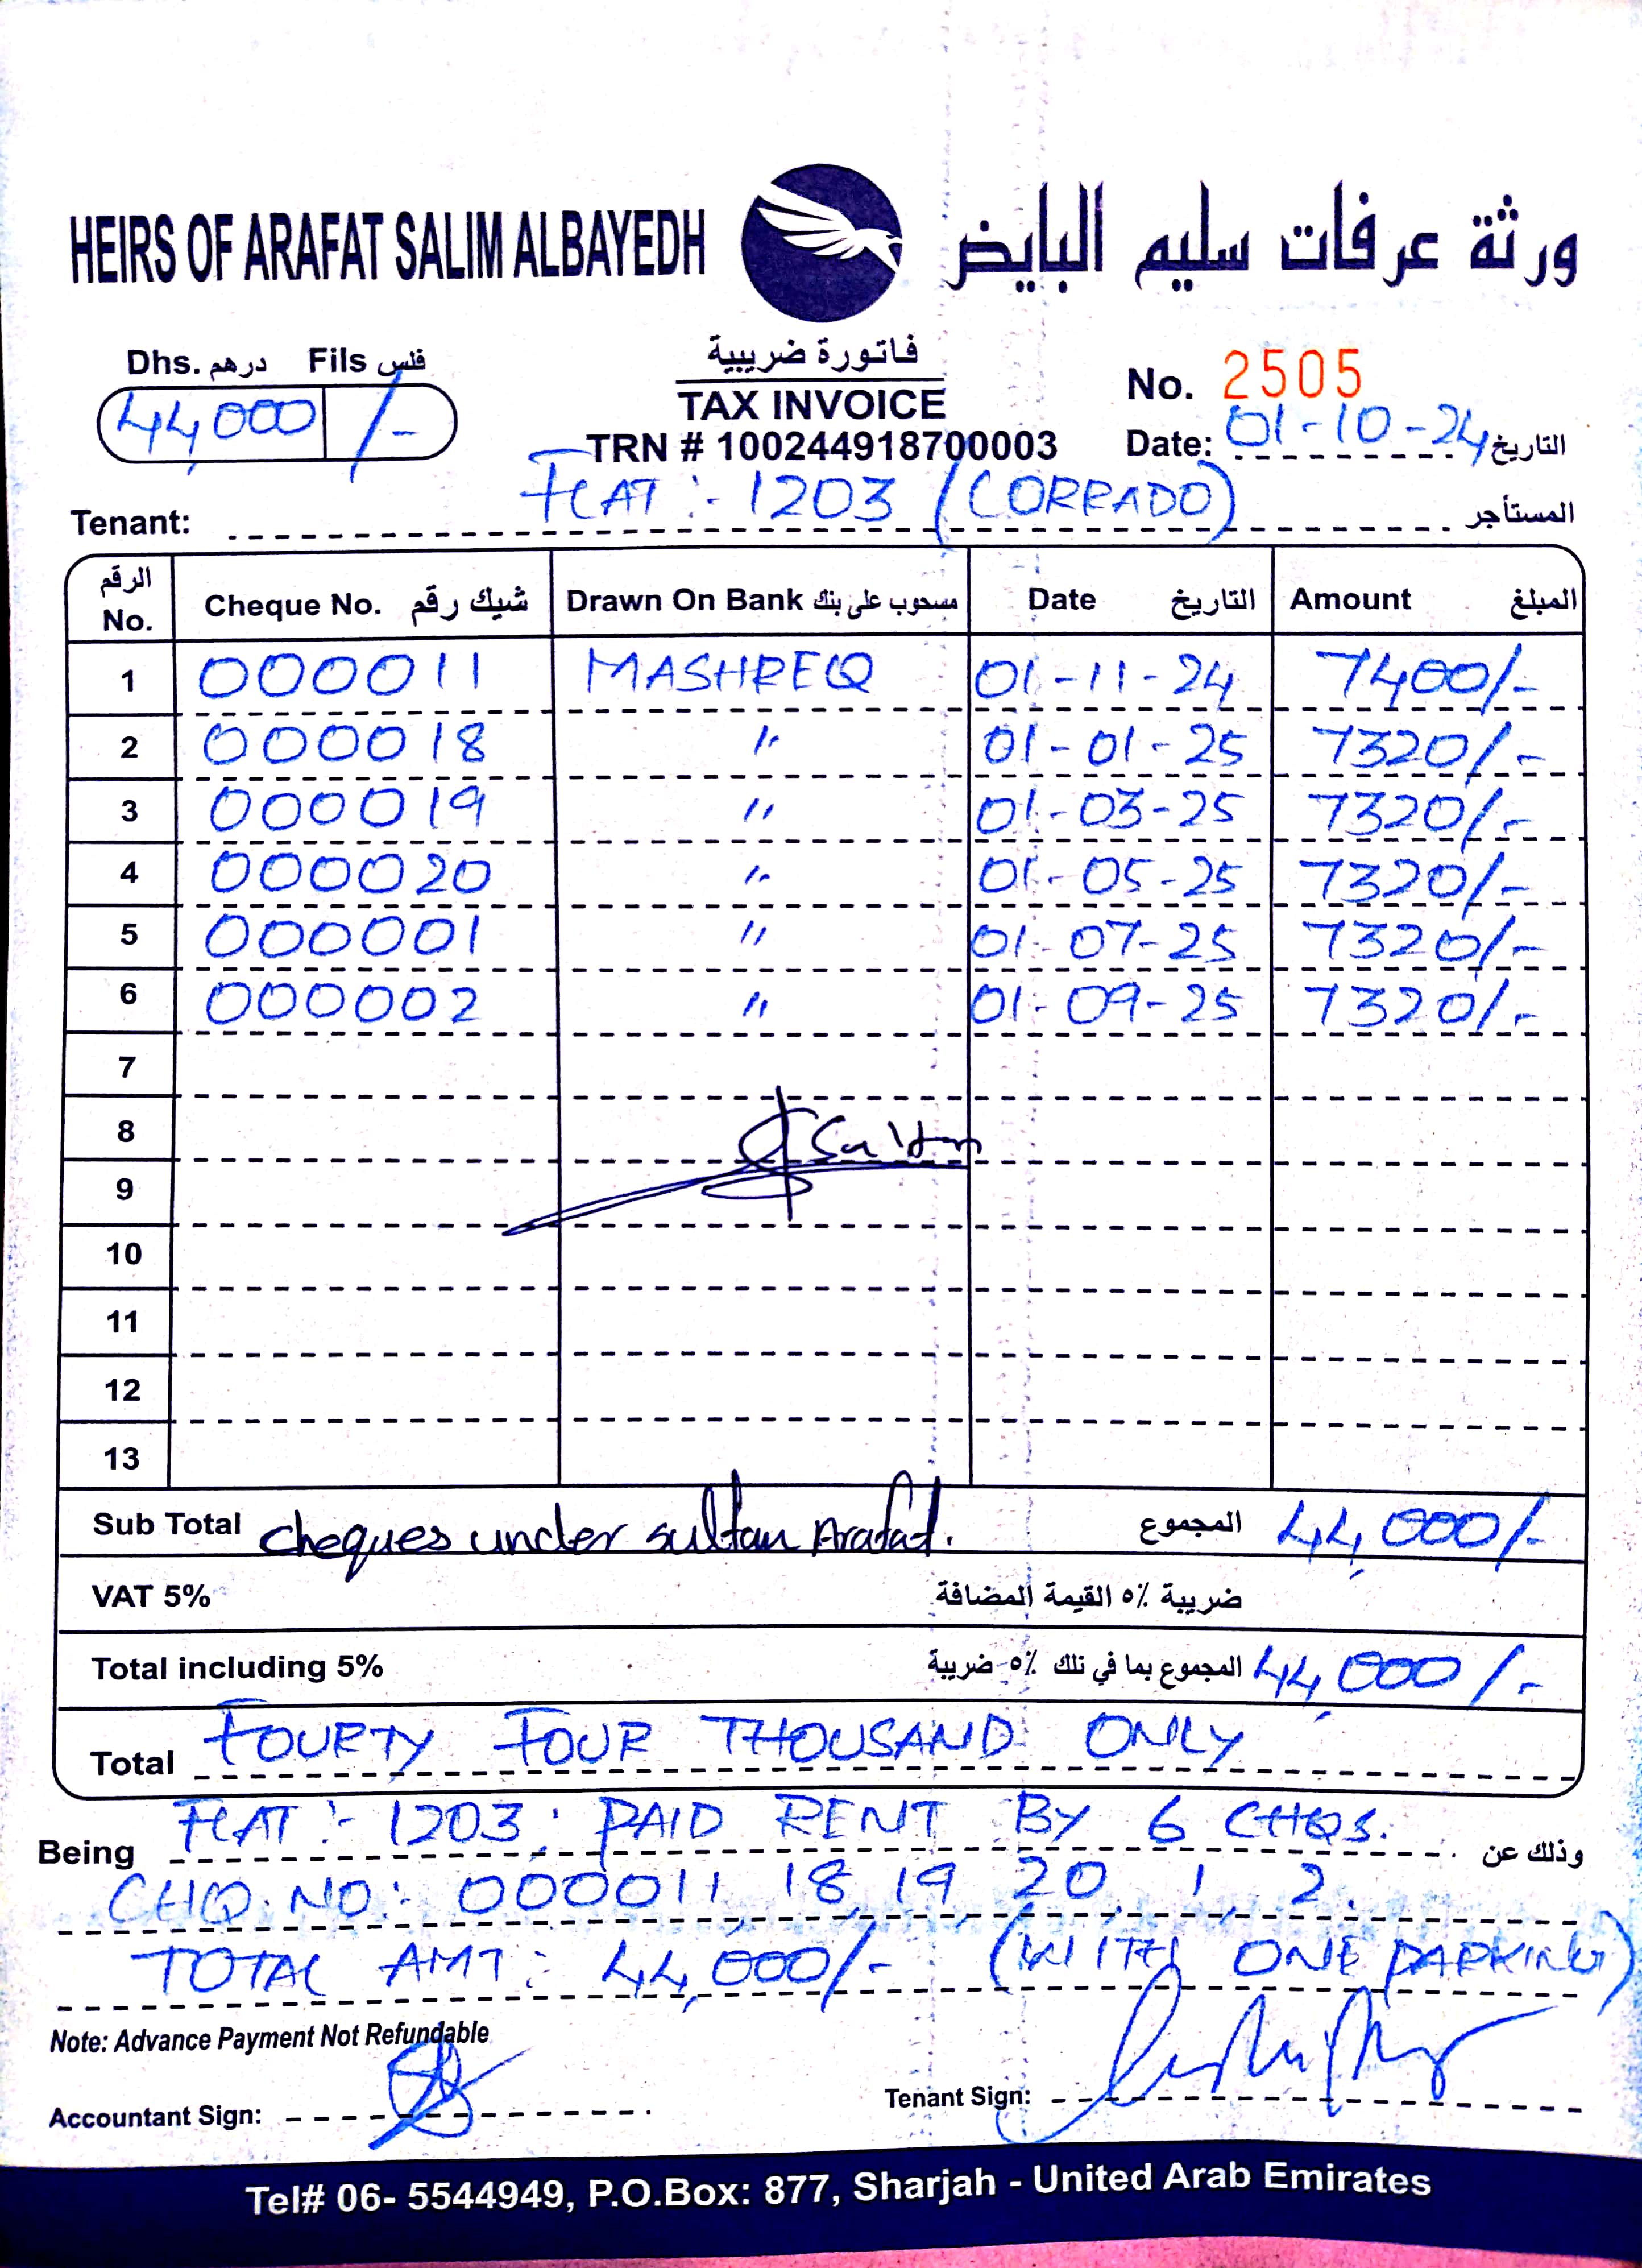 HEIRS OF ARAFAT SALIM ALBAYEDH ورثة عرفات سليم البايض
Dhs. درهم Fils فلس
44,000 /-
فاتورة ضريبية
TAX INVOICE
TRN # 100244918700003
No. 2505
Date: 01-10-24 التاريخ
Tenant: FLAT :- 1203 (CORRADO) المستأجر
الرقم No. Cheque No. شيك رقم Drawn On Bank مسحوب على بنك Date التاريخ Amount المبلغ
1 000011 MASHREQ 01-11-24 7400/-
2 000018 " 01-01-25 7320/-
3 000019 " 01-03-25 7320/-
4 000020 " 01-05-25 7320/-
5 000001 " 01-07-25 7320/-
6 000002 " 01-09-25 7320/-
7
8
9
10
11
12
13
Sub Total cheques under sultan Arafat. المجموع 44,000/-
VAT 5% ضريبة ٥٪ القيمة المضافة
Total including 5% المجموع بما في تلك ٥٪ ضريبة 44,000/-
Total FOURTY FOUR THOUSAND ONLY
Being FLAT :- 1203, PAID RENT BY 6 CHQS. وذلك عن
CHQ. NO:- 000011, 18, 19, 20, 1, 2.
TOTAL AMT : 44,000/- (WITH ONE PARKING)
Note: Advance Payment Not Refundable
Accountant Sign:
Tenant Sign:
Tel# 06- 5544949, P.O.Box: 877, Sharjah - United Arab Emirates